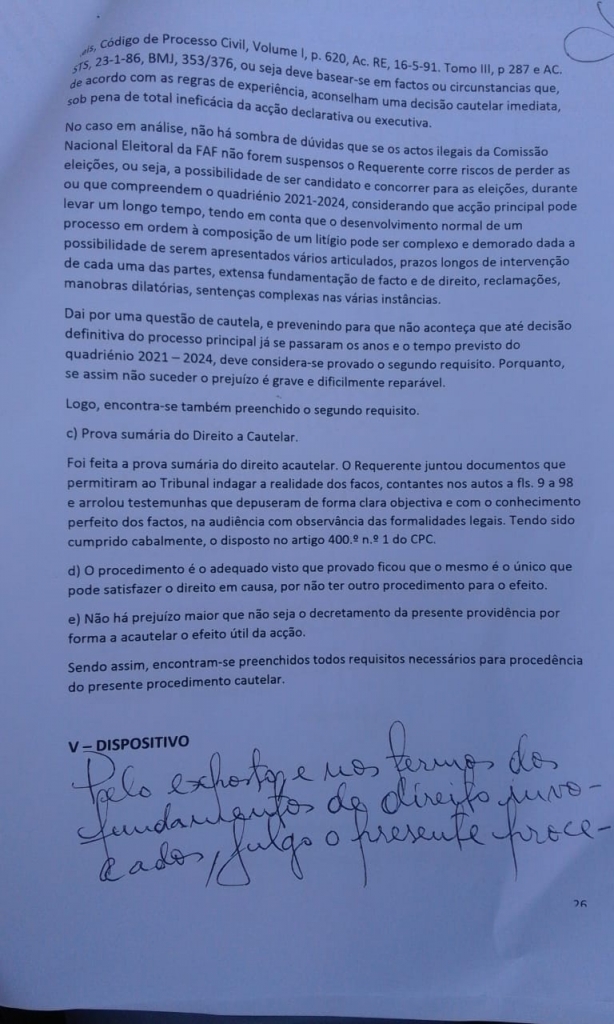 ais, Código de Processo Civil, Volume I, p. 620, Ac. RE, 16-5-91. Tomo III, p 287 e AC.
STS, 23-1-86, BMJ, 353/376, ou seja deve basear-se em factos ou circunstancias que,
de acordo com as regras de experiência, aconselham uma decisão cautelar imediata,
sob pena de total ineficácia da acção declarativa ou executiva.
No caso em análise, não há sombra de dúvidas que se os actos ilegais da Comissão
Nacional Eleitoral da FAF não forem suspensos o Requerente corre riscos de perder as
eleições, ou seja, a possibilidade de ser candidato e concorrer para as eleições, durante
ou que compreendem o quadriénio 2021-2024, considerando que acção principal pode
levar um longo tempo, tendo em conta que o desenvolvimento normal de um
processo em ordem à composição de um litígio pode ser complexo e demorado dada a
possibilidade de serem apresentados vários articulados, prazos longos de intervenção
de cada uma das partes, extensa fundamentação de facto e de direito, reclamações,
manobras dilatórias, sentenças complexas nas várias instâncias.
Dai por uma questão de cautela, e prevenindo para que não aconteça que até decisão
definitiva do processo principal já se passaram os anos e o tempo previsto do
quadriénio 2021 – 2024, deve considera-se provado o segundo requisito. Porquanto,
se assim não suceder o prejuízo é grave e dificilmente reparável.
Logo, encontra-se também preenchido o segundo requisito.
c) Prova sumária do Direito a Cautelar.
Foi feita a prova sumária do direito acautelar. O Requerente juntou documentos que
permitiram ao Tribunal indagar a realidade dos facos, contantes nos autos a fls. 9 a 98
e arrolou testemunhas que depuseram de forma clara objectiva e com o conhecimento
perfeito dos factos, na audiência com observância das formalidades legais. Tendo sido
cumprido cabalmente, o disposto no artigo 400.º n.º 1 do CPC.
d) O procedimento é o adequado visto que provado ficou que o mesmo é o único que
pode satisfazer o direito em causa, por não ter outro procedimento para o efeito.
e) Não há prejuízo maior que não seja o decretamento da presente providência por
forma a acautelar o efeito útil da acção.
Sendo assim, encontram-se preenchidos todos requisitos necessários para procedência
do presente procedimento cautelar.
V – DISPOSITIVO
Pelo exposto, e nos termos dos
fundamentos de direito invo-
cados, julgo o presente proce-
26